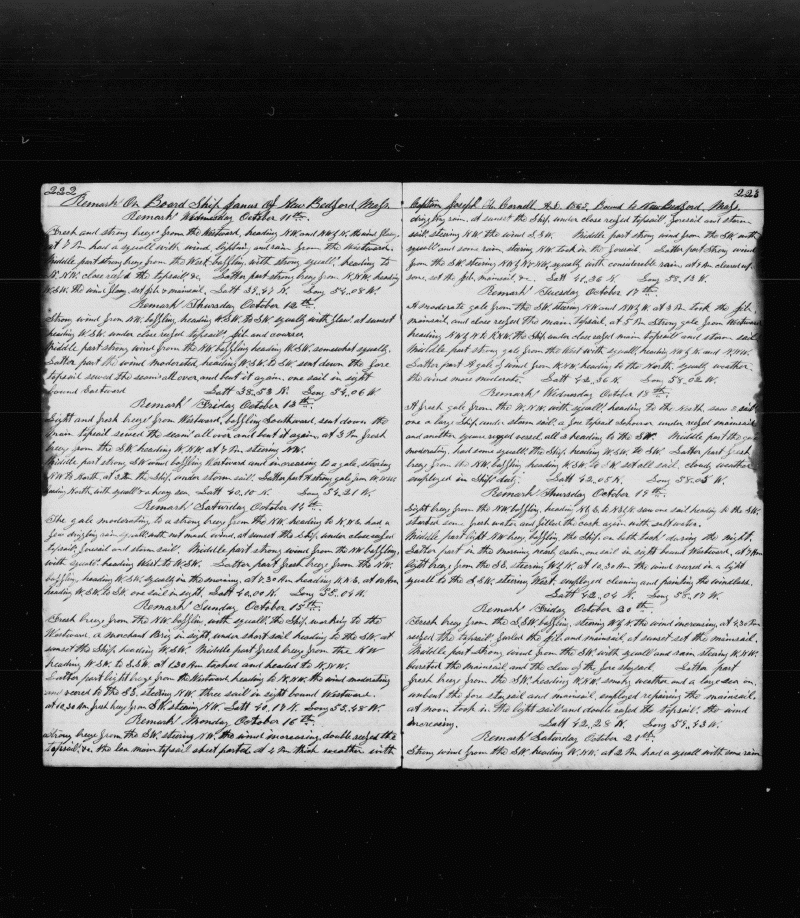 222
Remarks On Board Ship Janus Of New Bedford, Mass.
Remarks Wednesday October 11th.
Fresh and strong breeze from the Westward, heading NW and NW by W.
at 7 Pm had a squall with wind, lightning and rain from the Westward.
Middle part strong breeze from the West baffling, with strong squalls, heading to
N.NW. close reefed the topsails &c. Latter part strong breeze from N.NW. heading
W.SW. the wind flawy, set jib & mainsail. Latt 39..47 N. Long 54..08 W.
Remarks Thursday October 12th.
Strong wind from NW. baffling, heading W.SW. to SW. squally with flaws. at sunset
heading W.SW. under close reefed topsails, jib and courses.
Middle part strong wind from the NW baffling heading W.SW. somewhat squally.
Latter part the wind moderated, heading W.SW. to SW. sent down the fore
topsail sewed the seams all over and bent it again, one sail in sight
bound Eastward Latt 38..53 N. Long 54..06 W
Remarks Friday October 13th.
Light and fresh breeze from Westward, baffling Southward, sent down the
main topsail sewed the seams all over and bent it again, at 3 Pm fresh
breeze from the SW. heading W.NW. at 4 Pm steering NW.
Middle part strong SW wind baffling Westward and increasing to a gale, steering
NW to North, at 3 Am the Ship under storm sails. Latter part A strong gale from W.
heading North, with squalls & a heavy sea. Latt 40..10 N. Long 54..21 W.
Remarks Saturday October 14th.
The gale moderating to a strong breeze from the NW. heading to N.NE. had a
few drizzling rain squalls, with not much wind, at sunset the Ship under close reefed
topsails, foresail and storm sails. Middle part strong wind from the NW baffling,
with squalls heading West to W.SW. Latter part fresh breeze from the NW.
baffling, heading W.SW. squally in the morning, at 7.30 Am heading N.NE. at 10 Am
heading W.SW. to SW. one sail in sight, Latt 40..00 N. Long 55..04 W.
Remarks Sunday October 15th.
Fresh breeze from the NW. baffling, with squalls, the Ship working to the
Westward. a merchant Brig in sight, under short sail heading to the SW. at
sunset the Ship heading W.SW. Middle part fresh breeze from the NW
heading W.SW. to S.SW. at 1.30 Am tacked and headed to N.NW.
Latter part light breeze from the Westward heading to N.NW. the wind moderating
and veered to the SE. steering NW. three sails in sight bound Westward.
at 10.30 Am fresh breeze from SW. steering NW. Latt 40..18 N. Long 55..48 W.
Remarks Monday October 16th.
Strong breeze from the SW. steering NW. the wind increasing, double reefed the
topsails, &c. the lee main topsail sheet parted, at 4 Pm thick weather with
223
Captain Joseph G. Cornell. A.D. 1865. Bound to New Bedford, Mass.
drizzling rain. at sunset the Ship under close reefed topsails, foresail and storm
sails. steering NW. the wind S.SW. Middle part strong wind from the SW with
squalls and some rain, steering NW. took in the foresail. Latter part Strong wind
from the SW. steering NW by W & NW. squally with considerable rain, at 8 Am cleared up
some, set the jib, mainsail, &c. Latt 41..36 N Long 58..13 W.
Remarks Tuesday October 17th.
A moderate gale from the SW. steering NW and NW by W. at 3 Pm took the jib,
mainsail, and close reefed the main topsail, at 5 Pm Strong gale from Westward
heading NW by N to N.NW. the Ship under close reefed main topsail and storm sails
Middle part strong gale from the West with squalls, heading NW by N. and N.NW.
Latter part A gale of wind from W.NW. heading to the North, squally weather.
the wind more moderate. Latt 42..36 N. Long 58..02 W.
Remarks Wednesday October 18th.
A fresh gale from the W.NW. with squalls, heading to the North, saw 2 sails
one a large Ship under storm sails. a fore topsail Schooner under reefed mainsail
and another square rigged vessel, all a heading to the SW. Middle part the gale
moderating, had some squalls, the Ship heading W.SW. to SW. Latter part fresh
breeze from the NW. baffling, heading W.SW. to SW. set all sail, cloudy weather
employed in Ships duty. Latt 42..05 N. Long 58..05 W.
Remarks Thursday October 19th.
Light breeze from the NW. baffling, heading NE by E. to NE by N. saw one sail heading to the SW.
started some fresh water and filled the cask again with salt water.
Middle part light NW breeze, baffling the Ship on both tacks during the night.
Latter part in the morning nearly calm, one sail in sight bound Westward, at 7 Am
light breeze from the SE. steering W by N. at 10.30 Am the wind veered in a light
squall to the S.SW. steering West. employed cleaning and painting the windlass.
Latt 42..04 N. Long 58..17 W.
Remarks Friday October 20th.
Fresh breeze from the S.SW. baffling, steering W by N the wind increasing, at 4.30 Pm
reefed the topsails. furled the jib and mainsail, at sunset set the mainsail.
Middle part strong wind from the SW. with squalls and rain steering W.NW.
bursted the mainsail and the clew of the fore staysail. Latter part
fresh breeze from the SW. heading W.NW. smoky weather and a large sea on.
unbent the fore staysail and mainsail, employed repairing the mainsail.
at noon took in the light sails and double reefed the topsails, the wind
increasing. Latt 42..28 N. Long 59..43 W.
Remarks Saturday October 21st.
Strong wind from the SW. heading W.NW. at 2 Pm had a squall with some rain